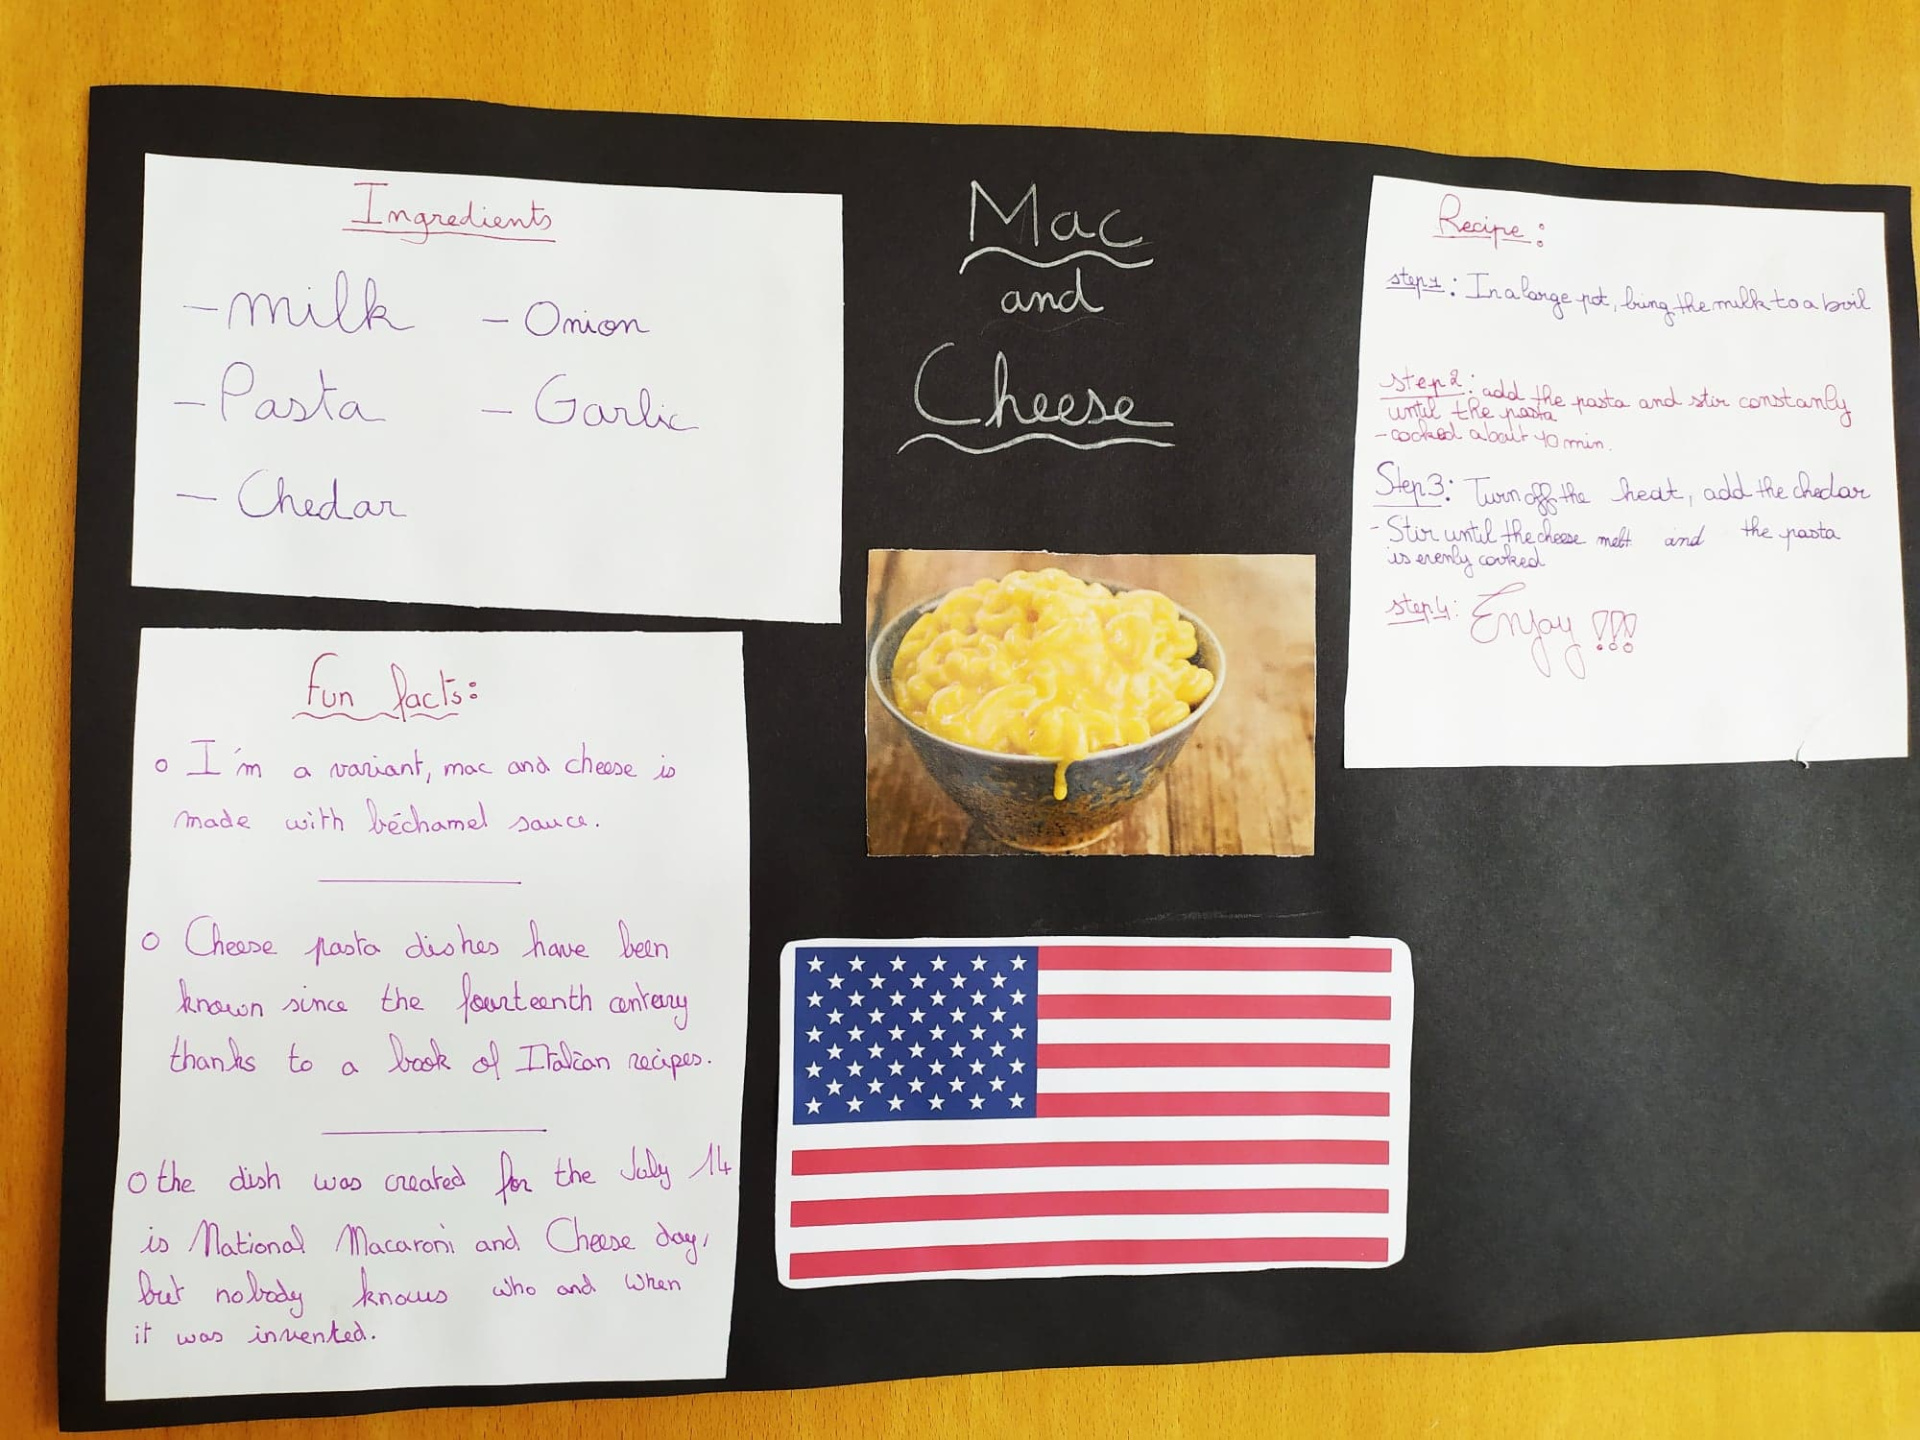 Mac
and
Cheese
Ingredients
- milk
- Pasta
- Chedar
- Onion
- Garlic
Fun facts:
o I'm a variant, mac and cheese is
made with béchamel sauce.
o Cheese pasta dishes have been
known since the fourteenth century
thanks to a book of Italian recipes.
o the dish was created for the July 14
is National Macaroni and Cheese day,
but nobody knows who and when
it was invented.
Recipe:
step 1: In a large pot, bring the milk to a boil
step 2: add the pasta and stir constanly
until the pasta
- cooked about 10 min.
Step 3: Turn off the heat, add the chedar
- Stir until the cheese melt and the pasta
is evenly cooked
step 4: Enjoy !!!